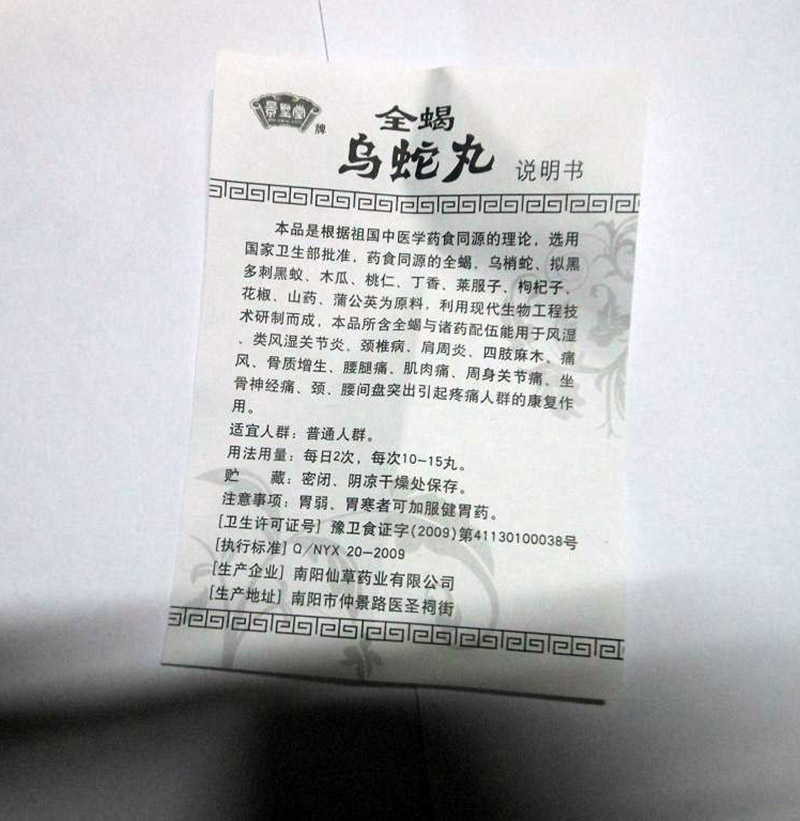 景聖堂 牌
全蝎
乌蛇丸 说明书
本品是根据祖国中医学药食同源的理论，选用
国家卫生部批准，药食同源的全蝎、乌梢蛇、拟黑
多刺黑蚁、木瓜、桃仁、丁香、莱服子、枸杞子、
花椒、山药、蒲公英为原料，利用现代生物工程技
术研制而成，本品所含全蝎与诸药配伍能用于风湿
、类风湿关节炎、颈椎病、肩周炎、四肢麻木、痛
风、骨质增生、腰腿痛、肌肉痛、周身关节痛、坐
骨神经痛、颈、腰间盘突出引起疼痛人群的康复作
用。
适宜人群：普通人群。
用法用量：每日2次，每次10-15丸。
贮 藏：密闭、阴凉干燥处保存。
注意事项：胃弱、胃寒者可加服健胃药。
[卫生许可证号] 豫卫食证字(2009)第41130100038号
[执行标准] Q/NYX 20-2009
[生产企业] 南阳仙草药业有限公司
[生产地址] 南阳市仲景路医圣祠街